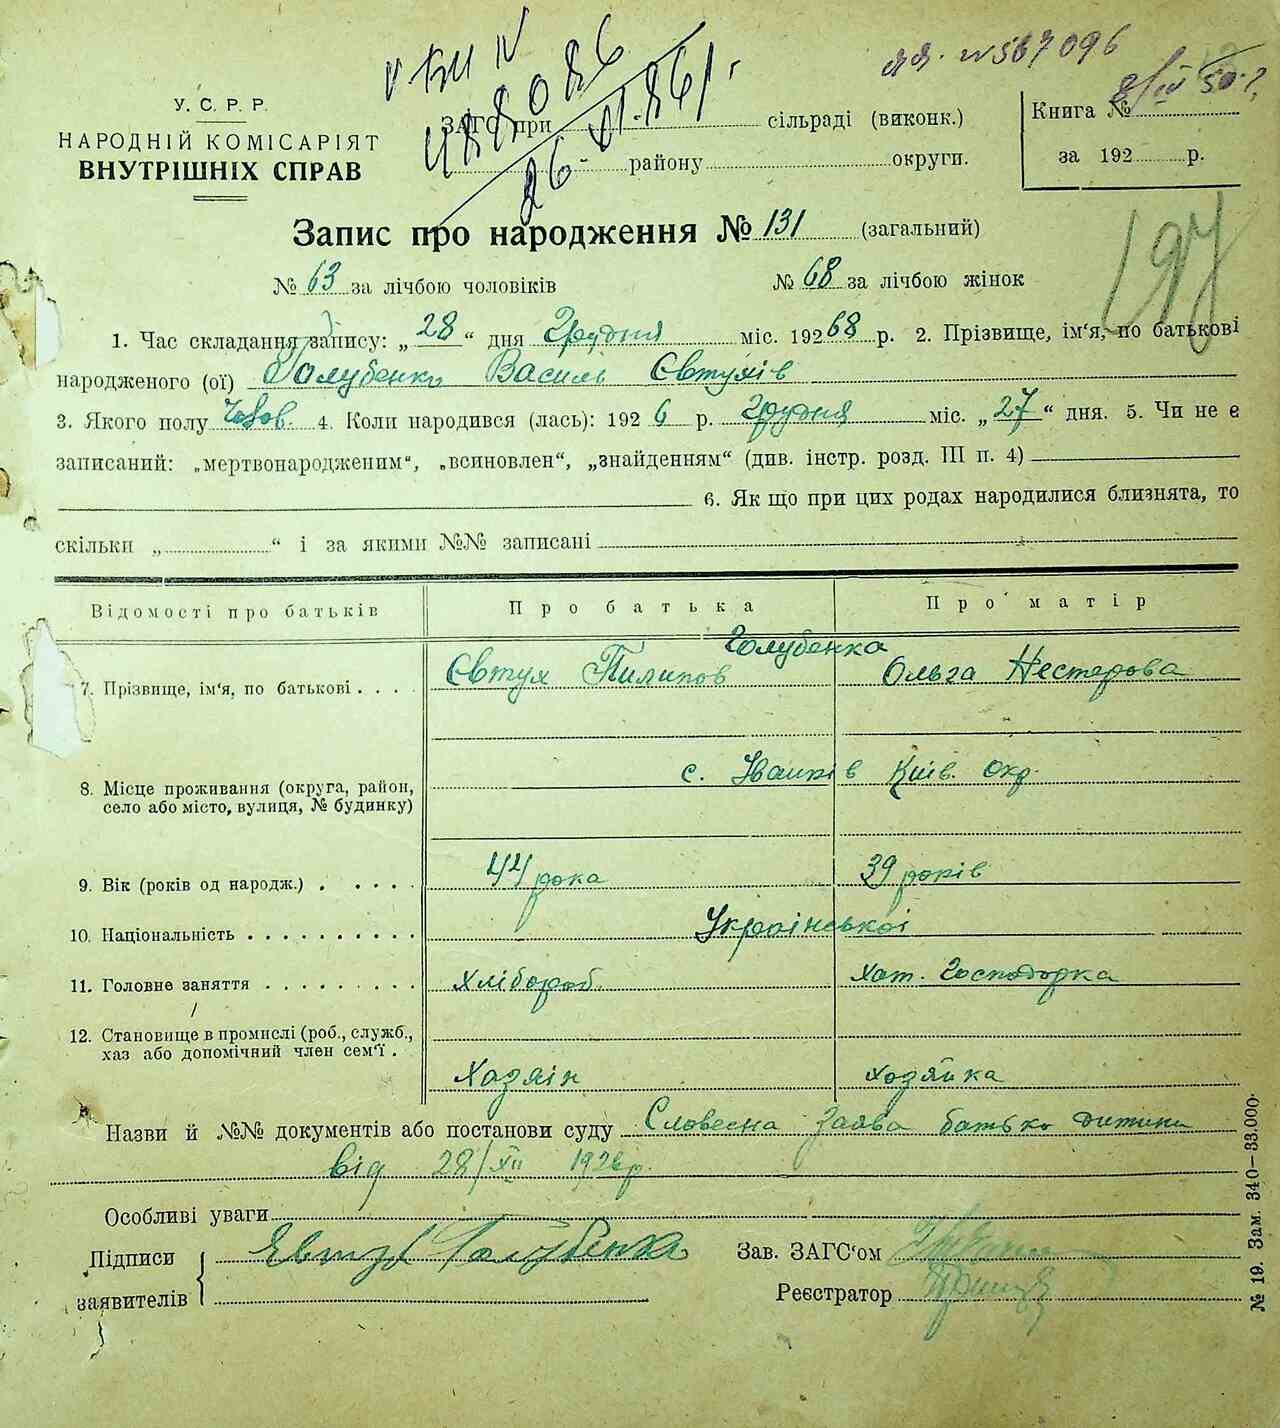 яя. № 567096
8/III 50 г.
У. С. Р. Р.
НАРОДНІЙ КОМІСАРІЯТ
ВНУТРІШНІХ СПРАВ
ЗАГС при сільраді (виконк.)
району округи.
Книга №
за 192 р.
Запис про народження № 131 (загальний)
197
№ 63 за лічбою чоловіків № 68 за лічбою жінок
1. Час складання запису: „28“ дня Грудня міс. 192 р. 2. Прізвище, ім‘я, по батькові
народженого (ої) Голубенко Василь Євтухів
3. Якого полу Чолов. 4. Коли народився (лась): 192 6 р. Грудня міс. „27“ дня. 5. Чи не є
записаний: „мертвонародженим“, „всиновлен“, „знайденням“ (див. інстр. розд. III п. 4)
6. Як що при цих родах народилися близнята, то
скільки „ “ і за якими №№ записані
Відомості про батьків Про батька Про матір
Голубенка
7. Прізвище, ім‘я, по батькові . . . . Євтух Пилипов Ольга Нестерова
8. Місце проживання (округа, район,
село або місто, вулиця, № будинку) с. Іванків Київ. окр.
9. Вік (років од народж.) . . . . . 44 рока 39 років
10. Національність . . . . . . . . . . Української
11. Головне заняття . . . . . . . . . Хлібороб. Хат. Господорка
12. Становище в промислі (роб., служб.,
хаз або допомічний член сем‘ї . Хазяін хозяйка
Назви й №№ документів або постанови суду Словесна заява батько дитини
від 28/XII 1926 р.
Особливі уваги
Підписи Явтух Голубенка Зав. ЗАГС‘ом
заявителів Реєстратор
№ 19. Зам. 340—33.000.